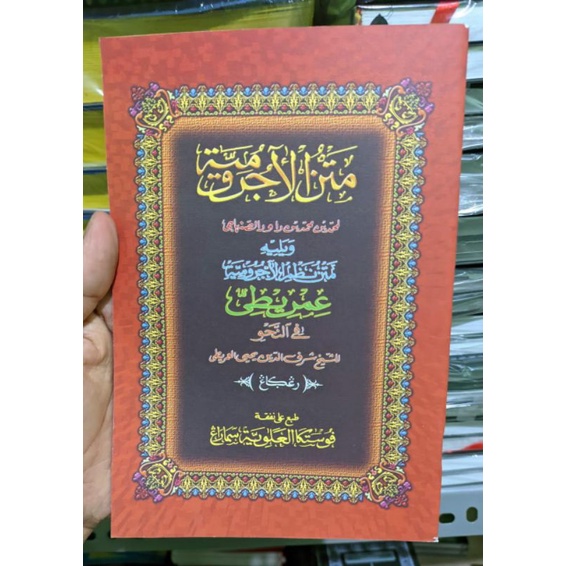 متن الآجرومية
لمحمد بن محمد بن داود الصنهاجي
ويليه
متن نظم الآجرومية
عمريطي
في النحو
للشيخ شرف الدين يحيى العمريطي
طبع على نفقة
فوستكا العلوية سماراغ